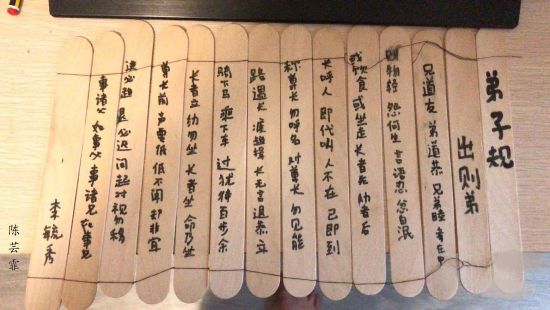 弟子规
出则弟
兄道友 弟道恭 兄弟睦 孝在中
物轻 怨何生 言语忍 忿自泯
或饮食 或坐走 长者先 幼者后
长呼人 即代叫 人不在 己即到
称尊长 勿呼名 对尊长 勿见能
路遇长 疾趋揖 长无言 退恭立
骑下马 乘下车 过犹待 百步余
长者立 幼勿坐 长者坐 命乃坐
尊长前 声要低 低不闻 却非宜
进必趋 退必迟 问起对 视勿移
事诸父 如事父 事诸兄 如事兄
李毓秀
陈芸霏